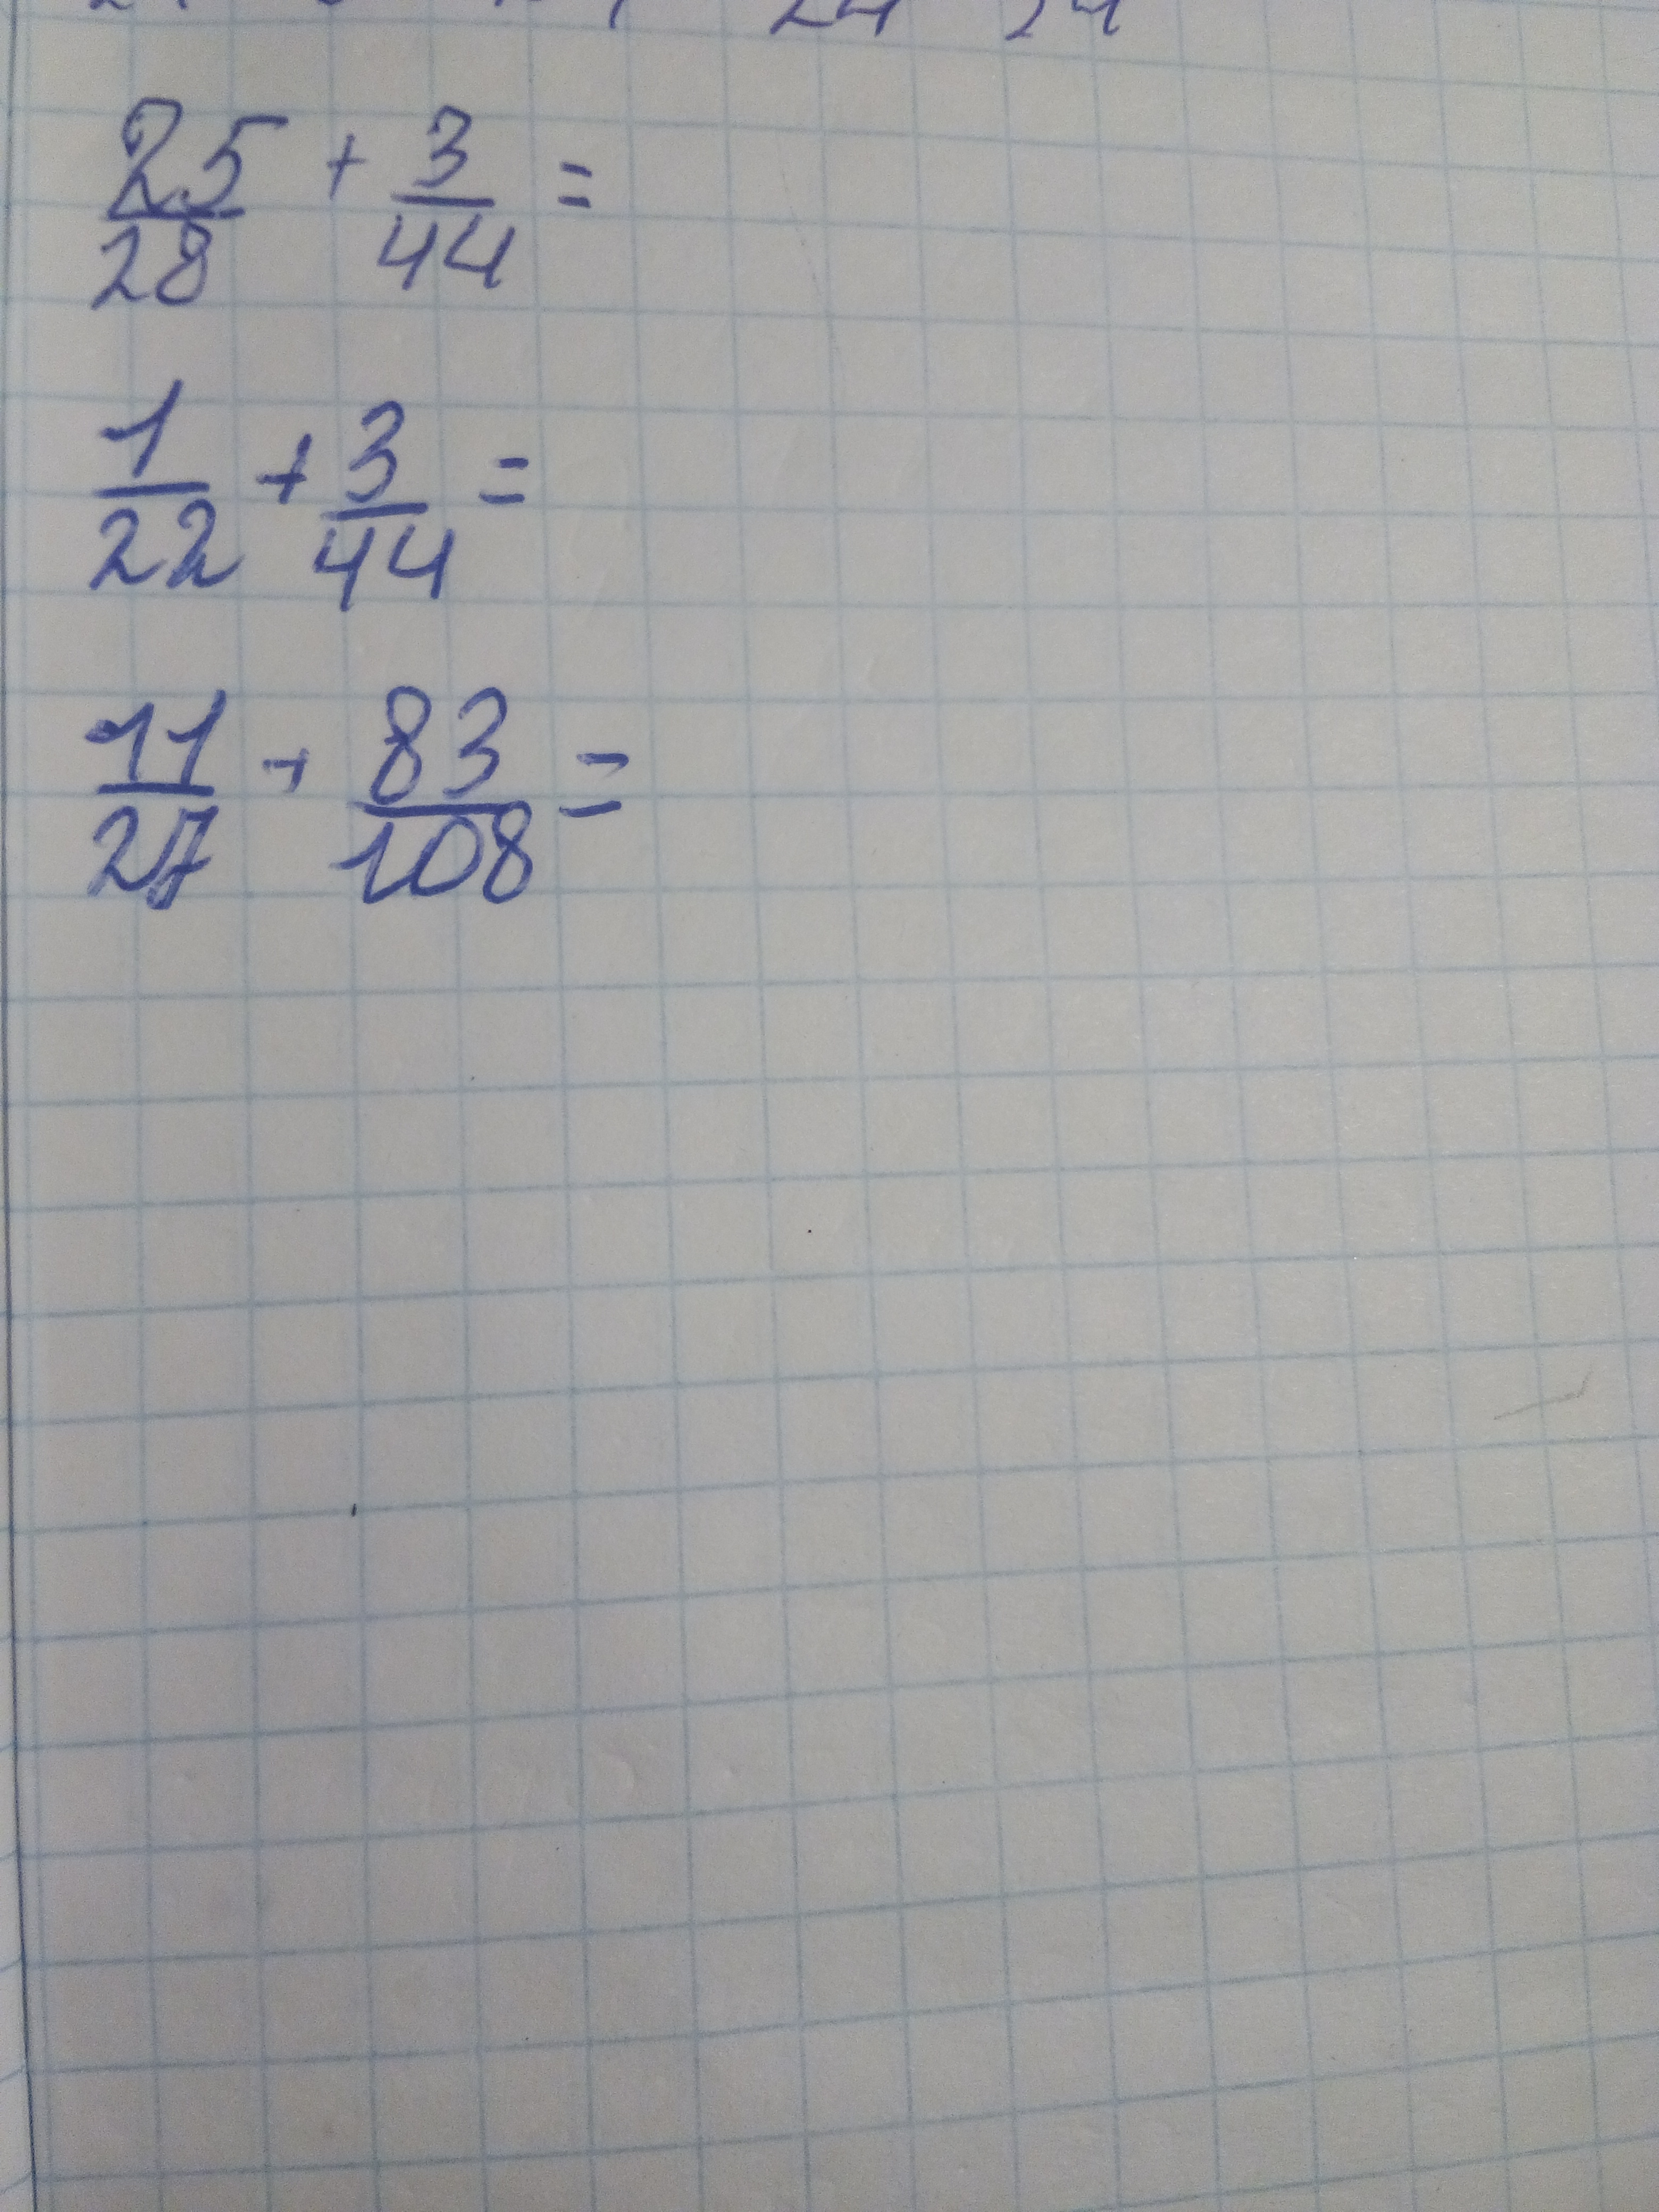 25/28 + 3/44 =
1/22 + 3/44 =
11/27 + 83/108 =